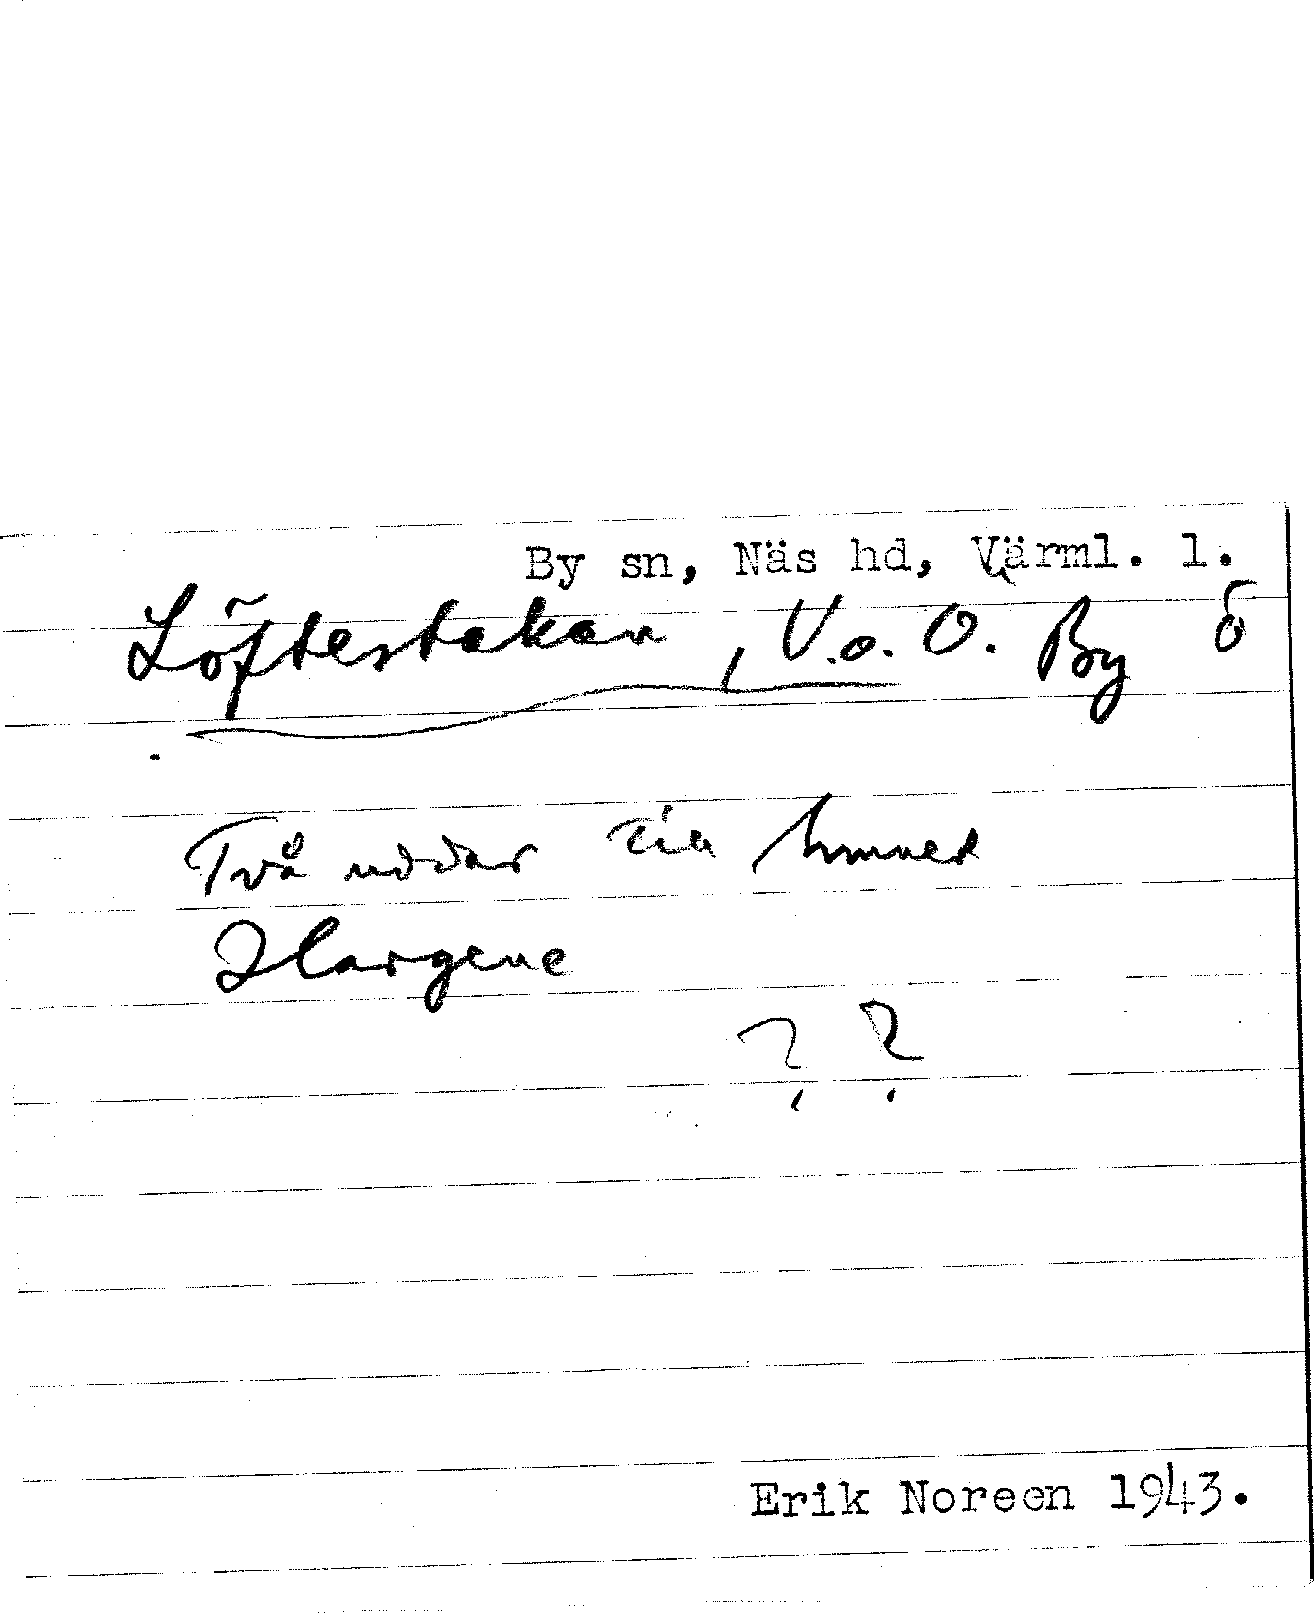 By sn, Näs hd, Värml. l.
Löftestakan, V. o. O. By ö
Två uddar till hemmet
Hargene
? ?
Erik Noreen 1943.